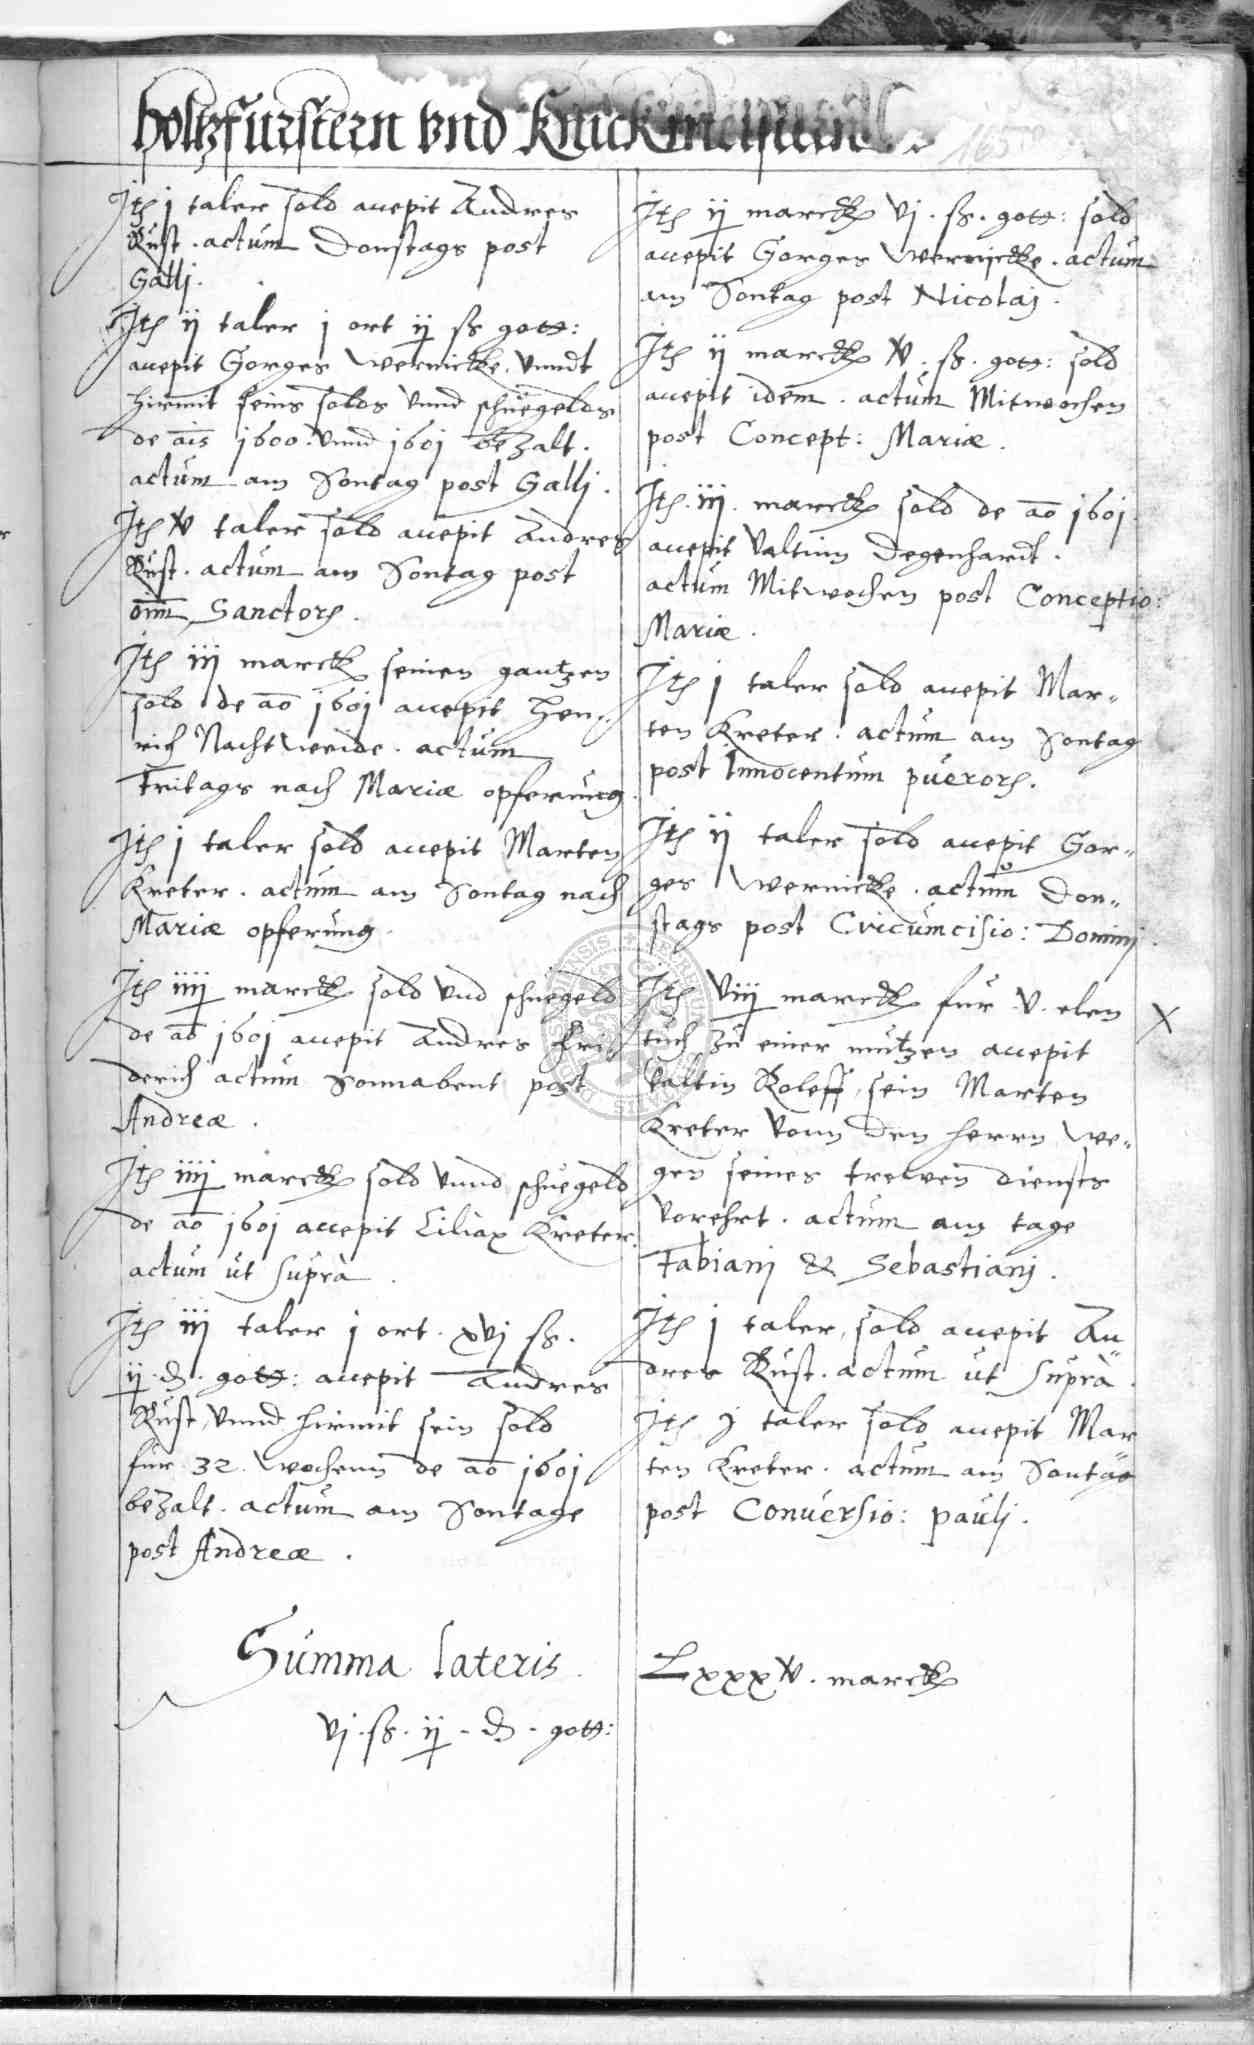 holtzfurstern vnd Knickmeistern
165
Jt j taler sold accepit Andres
Rust . actum Donstags post
Galli .
Jt ij taler j ort ij ß gott:
accepit Gorges Wernicke . Vnndt
hirmit seins solds Vnnd schuegelds
de ais 1600 . Vnnd 1601 bezalt .
actum am Sontag post Galli .
Jt v taler sold accepit Andres
Rust . actum am Sontag post
oim Sanctor .
Jt iij marck seinen gantzen
sold de ao 1601 accepit Hen„
rich Nachtweide . actum
Fritags nach Mariæ opferung .
Jt j taler sold accepit Marten
Kreter . actum am Sontag nach
Mariæ opferung .
Jt iiij marck sold vnd schuegeld
de ao 1601 accepit Andres Fri
derich actum Sonnabent post
Andreæ .
Jt iiij marck sold vnnd schuegeld
de ao 1601 accepit Ciliax Kreter .
actum ut suprà .
Jt iij taler j ort . xvj ß .
ij . d . gott: accepit Andres
Rust, vnnd hirmit sein sold
fur 32 . Wochenn de ao 1601
bezalt . actum am Sontage
post Andreæ .
Jt ij marck vj . ß . gott: sold
accepit Gorges Wernicke . actum
am Sontag post Nicolaj .
Jt ij marck v . ß . gott: sold
accepit idem . actum Mitwochen
post Concept: Mariæ .
Jt . iij . marck sold de ao 1601
accepit Valtinn Degenhardt .
actum Mitwochen post Conceptio:
Mariæ .
Jt j taler sold accepit Mar„
ten Kreter . actum am Sontag
post Innocentum pueror .
Jt ij taler sold accepit Gor„
ges Wernicke . actum Don„
stags post Cricumcisio: Domini .
Jt viij marck fur v . elen X
tuch zu einer mutzen accepit
Valtin Roleff, sein Marten
Kreter vonn den herrn we„
gen seines trewen diensts
vorehrt . actum am tage
Fabiani & Sebastiani .
Jt j taler, sold accepit An„
dres Rust . actum ut suprà .
Jt j taler sold accepit Mar„
ten Kreter . actum am Sontag
post Conversio: pauli .
Summa lateris Lxxxv . marck
vj . ß . ij . d . gott: